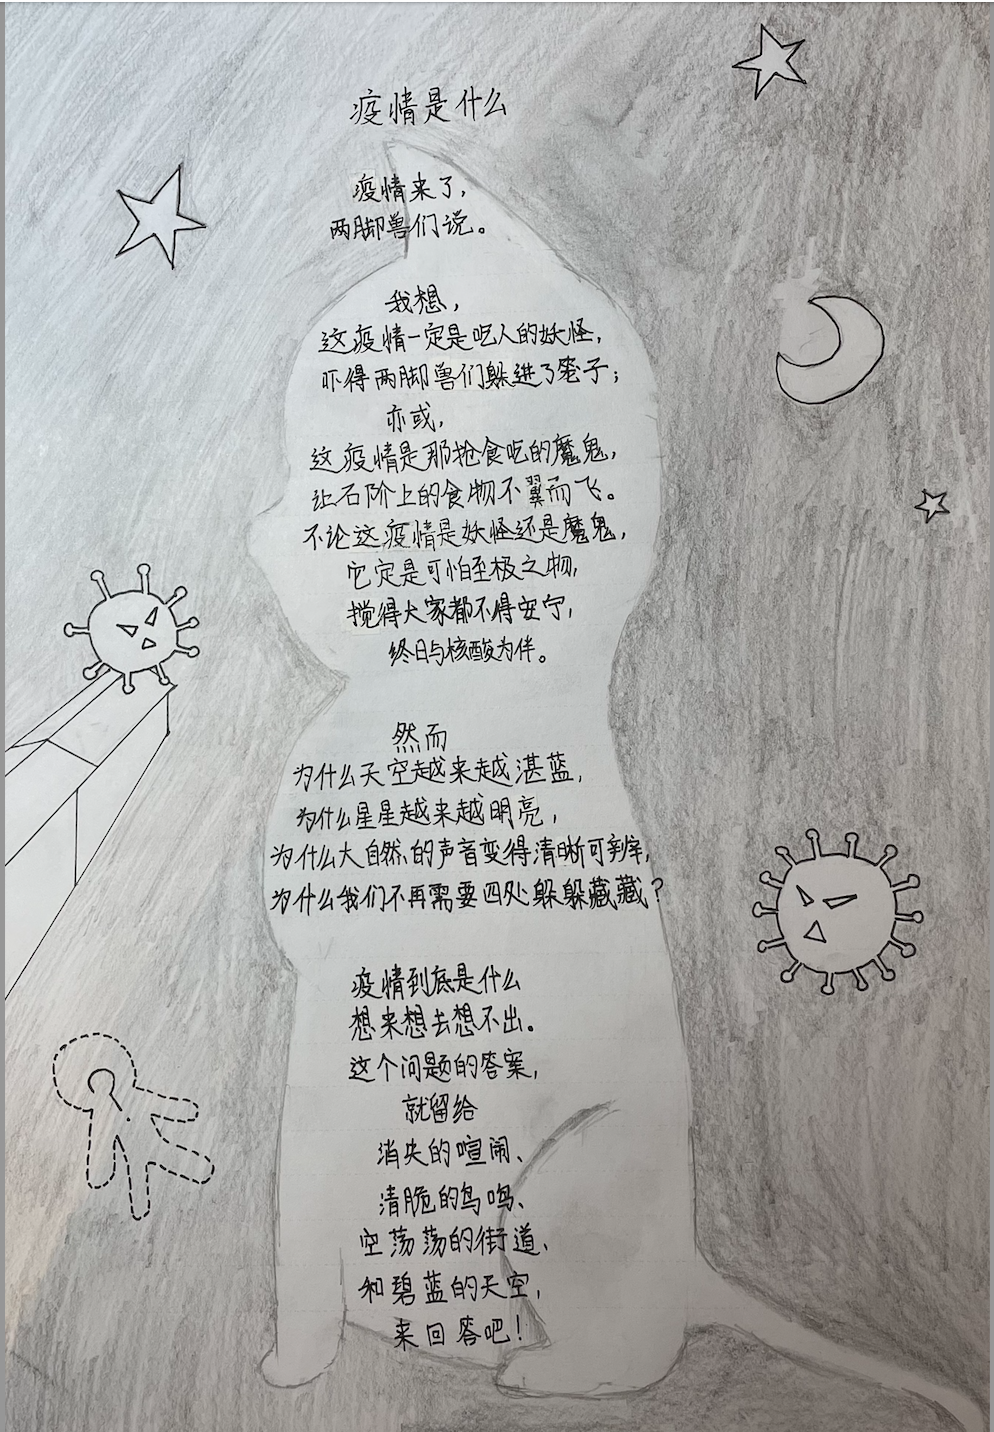 疫情是什么
疫情来了，
两脚兽们说。
我想，
这疫情一定是吃人的妖怪，
吓得两脚兽们躲进了笼子；
亦或，
这疫情是那抢食吃的魔鬼，
让石阶上的食物不翼而飞。
不论这疫情是妖怪还是魔鬼，
它定是可怕至极之物，
搅得大家都不得安宁，
终日与核酸为伴。
然而
为什么天空越来越湛蓝，
为什么星星越来越明亮，
为什么大自然的声音变得清晰可辨，
为什么我们不再需要四处躲躲藏藏？
疫情到底是什么
想来想去想不出。
这个问题的答案，
就留给
消失的喧闹、
清脆的鸟鸣、
空荡荡的街道，
和碧蓝的天空，
来回答吧！